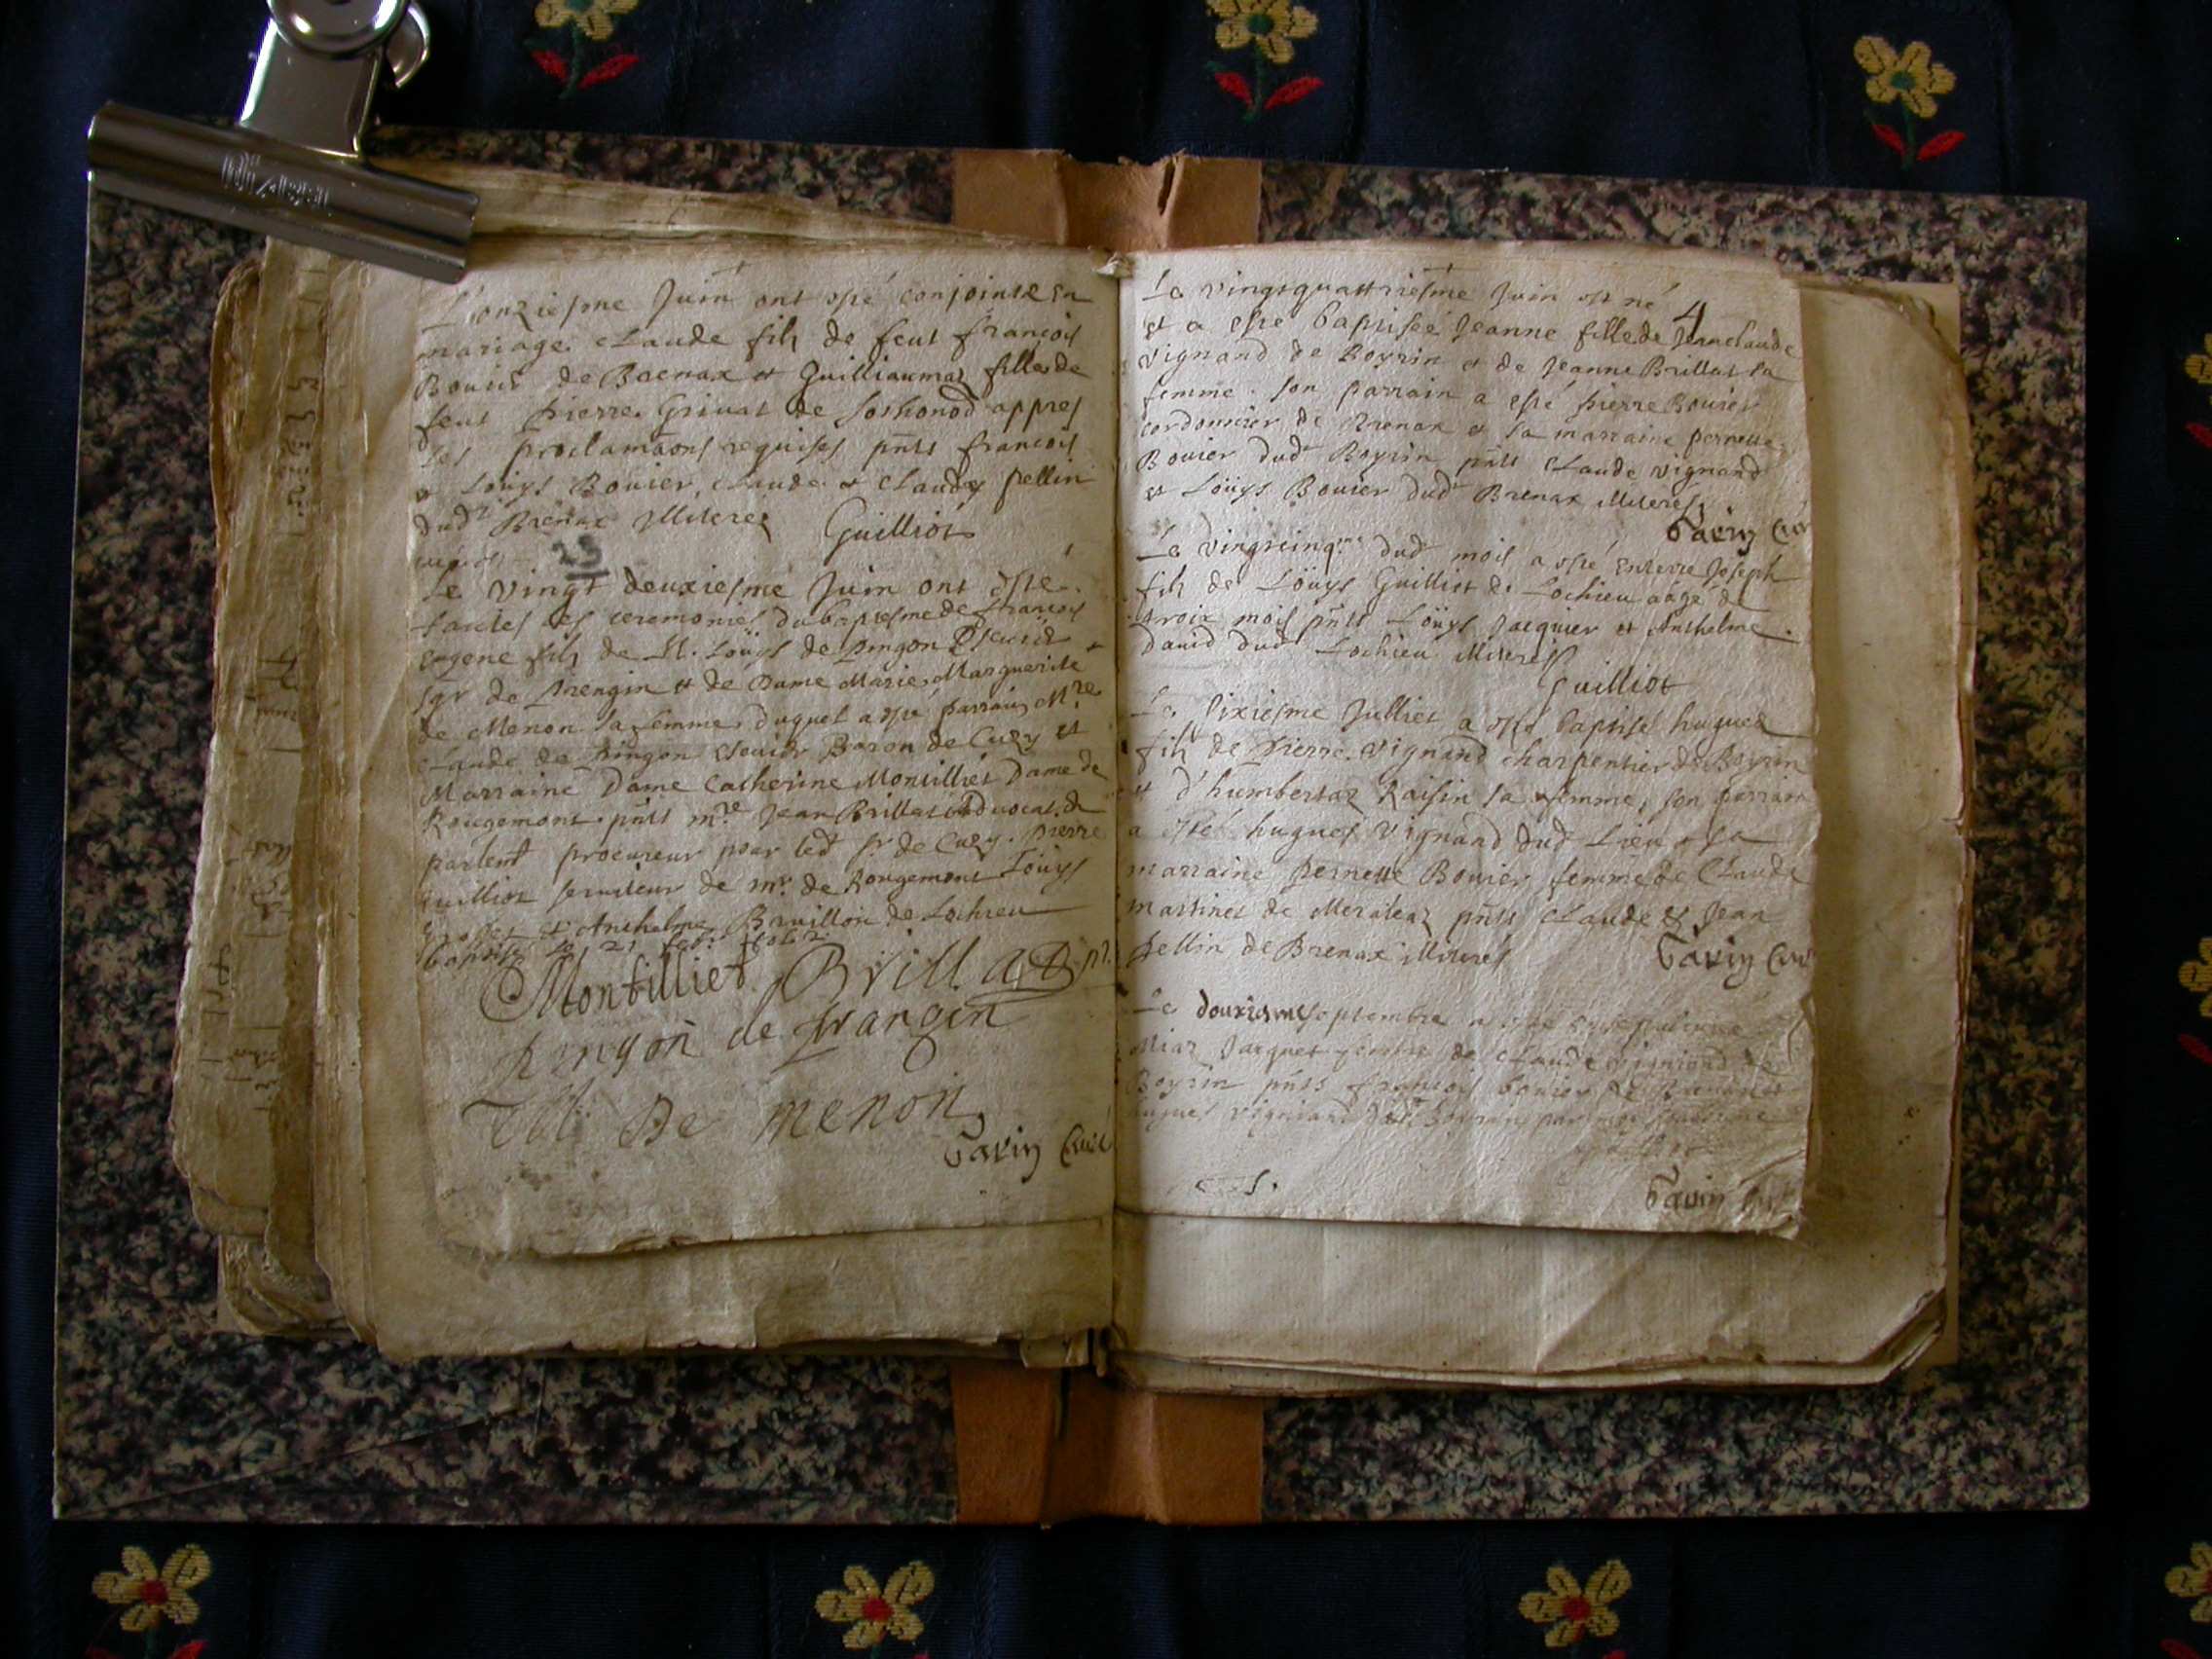 L'onziesme Juin ont esté conjoints En
mariage Claude fils de feut francois
Bouier de Brenax et Guilliaumaz fille de
feut pierre Griuat de Sothonod appres
les proclamaons requises pnts francois
et Loüys Bouier, Claude et Claudy pellin
dud Brenax Illiterez Guilliot
23
Le vingt deuxiesme Juin ont esté
faictes les ceremonies du baptesme de francois
eugene fils de Loüys de pingon Escuier
sgr de prengin et de Dame Marie Marguerite
de Menon sa femme duquel a esté parrain Mre
Claude de pingon Escuier Baron de Cuzy et
Marraine Dame Catherine Montilliet Dame de
Rougemont pnts mre Jean Brillat aduocat de
parlent procureur pour led sr de Cuzy pierre
guilliot seruiteur de mr de Rougemont Loüys
et Anthelme Bruillon de Lochieu
baptisé le 21
Montilliet Brillat
pingon de prangin
De menon
Gavin Curé
4
Le vingtquattriesme Juin est né
et a esté baptisée Jeanne fille de Jeanclaude
vignand de Boyrin et de Jeanne Brillat sa
femme son parrain a esté pierre Bouier
cordonnier de Brenax et sa marraine pernette
Bouier dud Boyrin pnts Claude vignand
et Loüys Bouier dud Brenax illiterés
Gavin Curé
Le vingtcinqme dud mois a esté enterré Joseph
fils de Loüys Guilliot de Lochieu aagé de
trois mois pnts Loüys Jacquier et Anthelme
Dauid dud Lochieu illiterés
Guilliot
Le sixiesme Julliet a esté baptisé hugues
fils de pierre vignand charpentier de Boyrin
et d'humbertaz Raisin sa femme, son parrain
a esté hugues vignand dud Lieu et sa
marraine pernette Bouier femme de Claude
martinet de Meraleaz pnts Claude & Jean
pellin de Brenax illiterés
Gavin Curé
Le douxiesme septembre a esté
Miaz Jacquet femme de Claude vigniand de
Boyrin pnts francois bouier de Brenax et
hugues vigniand dud boyrin par moy
Gavin